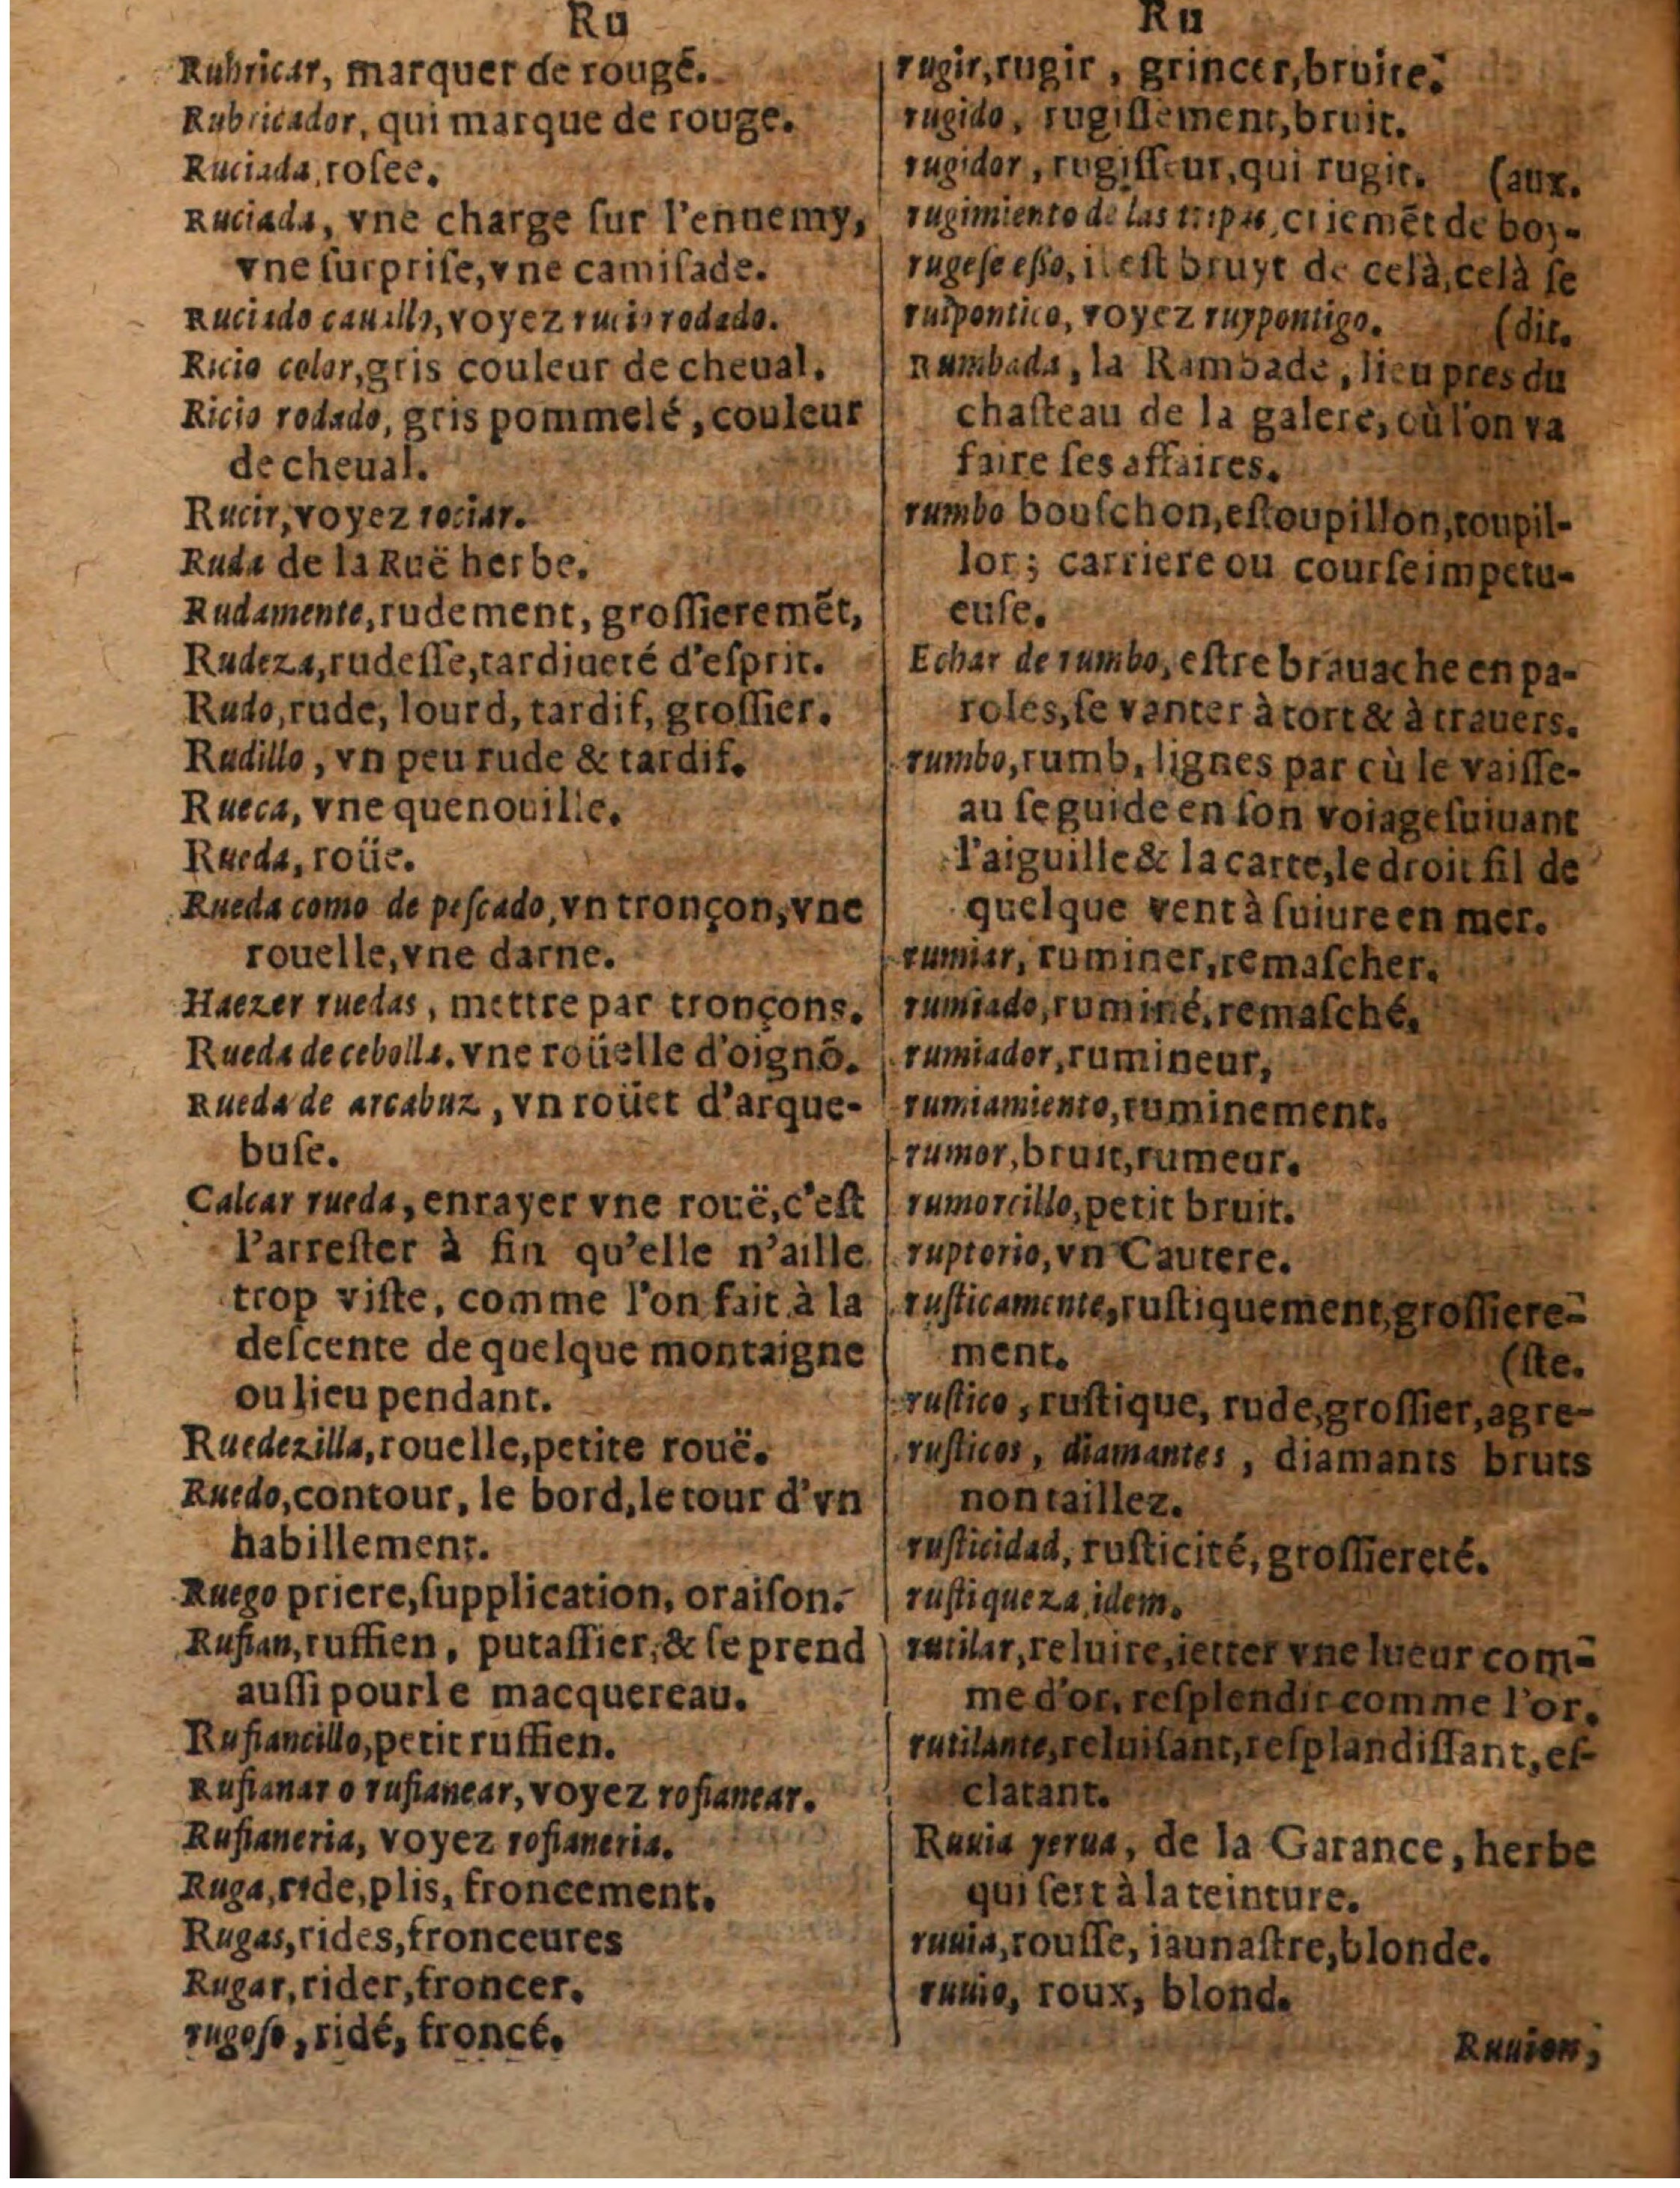 Ru
Rubricar, marquer de rougé.
Rubricador, qui marque de rouge.
Ruciada, roſee.
Ruciada, vne charge ſur l'ennemy,
vne ſurpriſe, vne camiſade.
Ruciado cauallo, voyez rucio rodado.
Ricio color, gris couleur de cheual.
Ricio rodado, gris pommelé, couleur
de cheual.
Rucir, voyez rociar.
Ruda de la Ruë herbe.
Rudamente, rudement, groſſieremẽt,
Rudeza, rudeſſe, tardiueté d'eſprit.
Rudo, rude, lourd, tardif, groſſier.
Rudillo, vn peu rude & tardif.
Rueca, vne quenouille.
Rueda, roüe.
Rueda como de peſcado, vn tronçon, vne
rouelle, vne darne.
Haezer ruedas, mettre par tronçons.
Rueda de cebolla. vne roüelle d'oignõ.
Rueda de arcabuz, vn roüet d'arque-
buſe.
Calcar rueda, enrayer vne rouë, c'eſt
l'arreſter à fin qu'elle n'aille
trop viſte, comme l'on fait à la
deſcente de quelque montaigne
ou lieu pendant.
Ruedezilla, rouelle, petite rouë.
Ruedo, contour, le bord, le tour d'vn
habillement.
Ruego priere, ſupplication, oraiſon.
Rufian, ruffien, putaſſier, & ſe prend
auſſi pourl e macquereau.
Rufiancillo, petit ruffien.
Rufianar o rufianear, voyez rofianear.
Rufianeria, voyez rofianeria.
Ruga, ride, plis, froncement.
Rugas, rides, fronceures
Rugar, rider, froncer.
rugoſo, ridé, froncé.
Ru
rugir, rugir, grincer, bruire.
rugido, rugiſſement, bruit.
rugidor, rugiſſeur, qui rugit. (aux.
rugimiento de las tripas, criemẽt de boy-
rugeſe eſſo, il eſt bruyt de celà, celà ſe
ruipontico, voyez ruypontigo. (dit.
Rumbada, la Rambade, lieu pres du
chaſteau de la galere, où l'on va
faire ſes affaires.
rumbo bouſchon, eſtoupillon, toupil-
lor; carriere ou courſe impetu-
euſe.
Echar de rumbo, eſtre brauache en pa-
roles, ſe vanter à tort & à trauers.
rumbo, rumb, lignes par où le vaiſſe-
au ſe guide en ſon voiage ſuiuant
l'aiguille & la carte, le droit fil de
quelque vent à ſuiure en mer.
rumiar, ruminer, remaſcher.
rumiado, ruminé, remaſché.
rumiador, rumineur,
rumiamiento, ruminement.
rumor, bruit, rumeur.
rumorcillo, petit bruit.
ruptorio, vn Cautere.
ruſticamente, ruſtiquement, groſſiere-
ment. (ſte.
ruſtico, ruſtique, rude, groſſier, agre-
ruſticos, diamantes, diamants bruts
non taillez.
ruſticidad, ruſticité, groſſiereté.
ruſtiqueza, idem.
rutilar, reluire, ietter vne lueur com-
me d'or, reſplendir comme l'or.
rutilante, reluiſant, reſplandiſſant, eſ-
clatant.
Ruuia yerua, de la Garance, herbe
qui ſert à la teinture.
ruuia, rouſſe, iaunaſtre, blonde.
ruuio, roux, blond.
Ruuion,